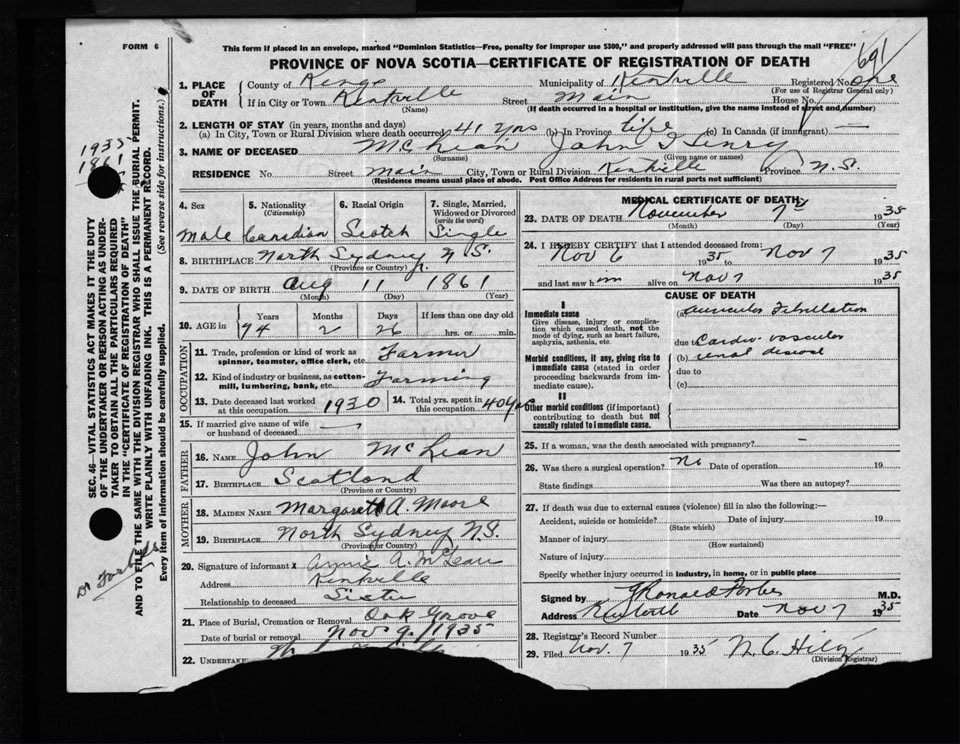 FORM 6
This form if placed in an envelope, marked "Dominion Statistics—Free, penalty for improper use $300," and properly addressed will pass through the mail "FREE"
691
PROVINCE OF NOVA SCOTIA—CERTIFICATE OF REGISTRATION OF DEATH
1. PLACE OF DEATH
County of Kings Municipality of Kentville Registered No. One
(For use of Registrar General only)
If in City or Town Kentville Street Main House No.
(Name) (If death occurred in a hospital or institution, give the name instead of street and number)
2. LENGTH OF STAY (in years, months and days)
(a) In City, Town or Rural Division where death occurred 41 yrs (b) In Province life (c) In Canada (if immigrant) —
3. NAME OF DECEASED McLean John Henry
(Surname) (Given name or names)
RESIDENCE No. Street Main City, Town or Rural Division Kentville Province N.S.
(Residence means usual place of abode. Post Office Address for residents in rural parts not sufficient)
4. Sex 5. Nationality (Citizenship) 6. Racial Origin 7. Single, Married, Widowed or Divorced (write the word)
Male Canadian Scotch Single
8. BIRTHPLACE North Sydney N.S.
(Province or Country)
9. DATE OF BIRTH Aug 11 1861
(Month) (Day) (Year)
10. AGE in Years Months Days If less than one day old
74 2 26 hrs. or min.
OCCUPATION
11. Trade, profession or kind of work as spinner, teamster, office clerk, etc. Farmer
12. Kind of industry or business, as cotton-mill, lumbering, bank, etc. Farming
13. Date deceased last worked at this occupation 1930 14. Total yrs. spent in this occupation 40 yrs
15. If married give name of wife or husband of deceased —
FATHER
16. NAME John McLean
17. BIRTHPLACE Scotland
(Province or Country)
MOTHER
18. MAIDEN NAME Margaret A. Moore
19. BIRTHPLACE North Sydney N.S.
(Province or Country)
20. Signature of informant x Annie A. McLean
Address Kentville
Relationship to deceased Sister
21. Place of Burial, Cremation or Removal Oak Grove
Date of burial or removal Nov 9, 1935
22. UNDERTAKER
MEDICAL CERTIFICATE OF DEATH
23. DATE OF DEATH November 7th 1935
(Month) (Day) (Year)
24. I HEREBY CERTIFY that I attended deceased from:
Nov 6 1935 to Nov 7 1935
and last saw h im alive on Nov 7 1935
CAUSE OF DEATH
I
Immediate cause
Give disease, injury or complication which caused death, not the mode of dying, such as heart failure, asphyxia, asthenia, etc.
(a) auricular Fibrillation
due to Cardio-vascular
Morbid conditions, if any, giving rise to immediate cause (stated in order proceeding backwards from immediate cause).
(b) renal disease
due to
(c)
II
Other morbid conditions (if important) contributing to death but not causally related to immediate cause.
25. If a woman, was the death associated with pregnancy? —
26. Was there a surgical operation? No Date of operation 19
State findings Was there an autopsy?
27. If death was due to external causes (violence) fill in also the following:—
Accident, suicide or homicide? Date of injury 19
(State which)
Manner of injury
(How sustained)
Nature of injury
Specify whether injury occurred in industry, in home, or in public place
Signed by Ronald Forbes M.D.
Address Kentville Date Nov 7 1935
28. Registrar's Record Number
29. Filed Nov. 7 1935
(Division Registrar)
SEC. 46—VITAL STATISTICS ACT MAKES IT THE DUTY
OF THE UNDERTAKER OR PERSON ACTING AS UNDERTAKER TO OBTAIN ALL THE PARTICULARS REQUIRED
IN THE "CERTIFICATE OF REGISTRATION OF DEATH"
AND TO FILE THE SAME WITH THE DIVISION REGISTRAR WHO SHALL ISSUE THE BURIAL PERMIT.
WRITE PLAINLY WITH UNFADING INK. THIS IS A PERMANENT RECORD.
Every item of information should be carefully supplied. (See reverse side for instructions.)
1935
1861
Dr Forbes